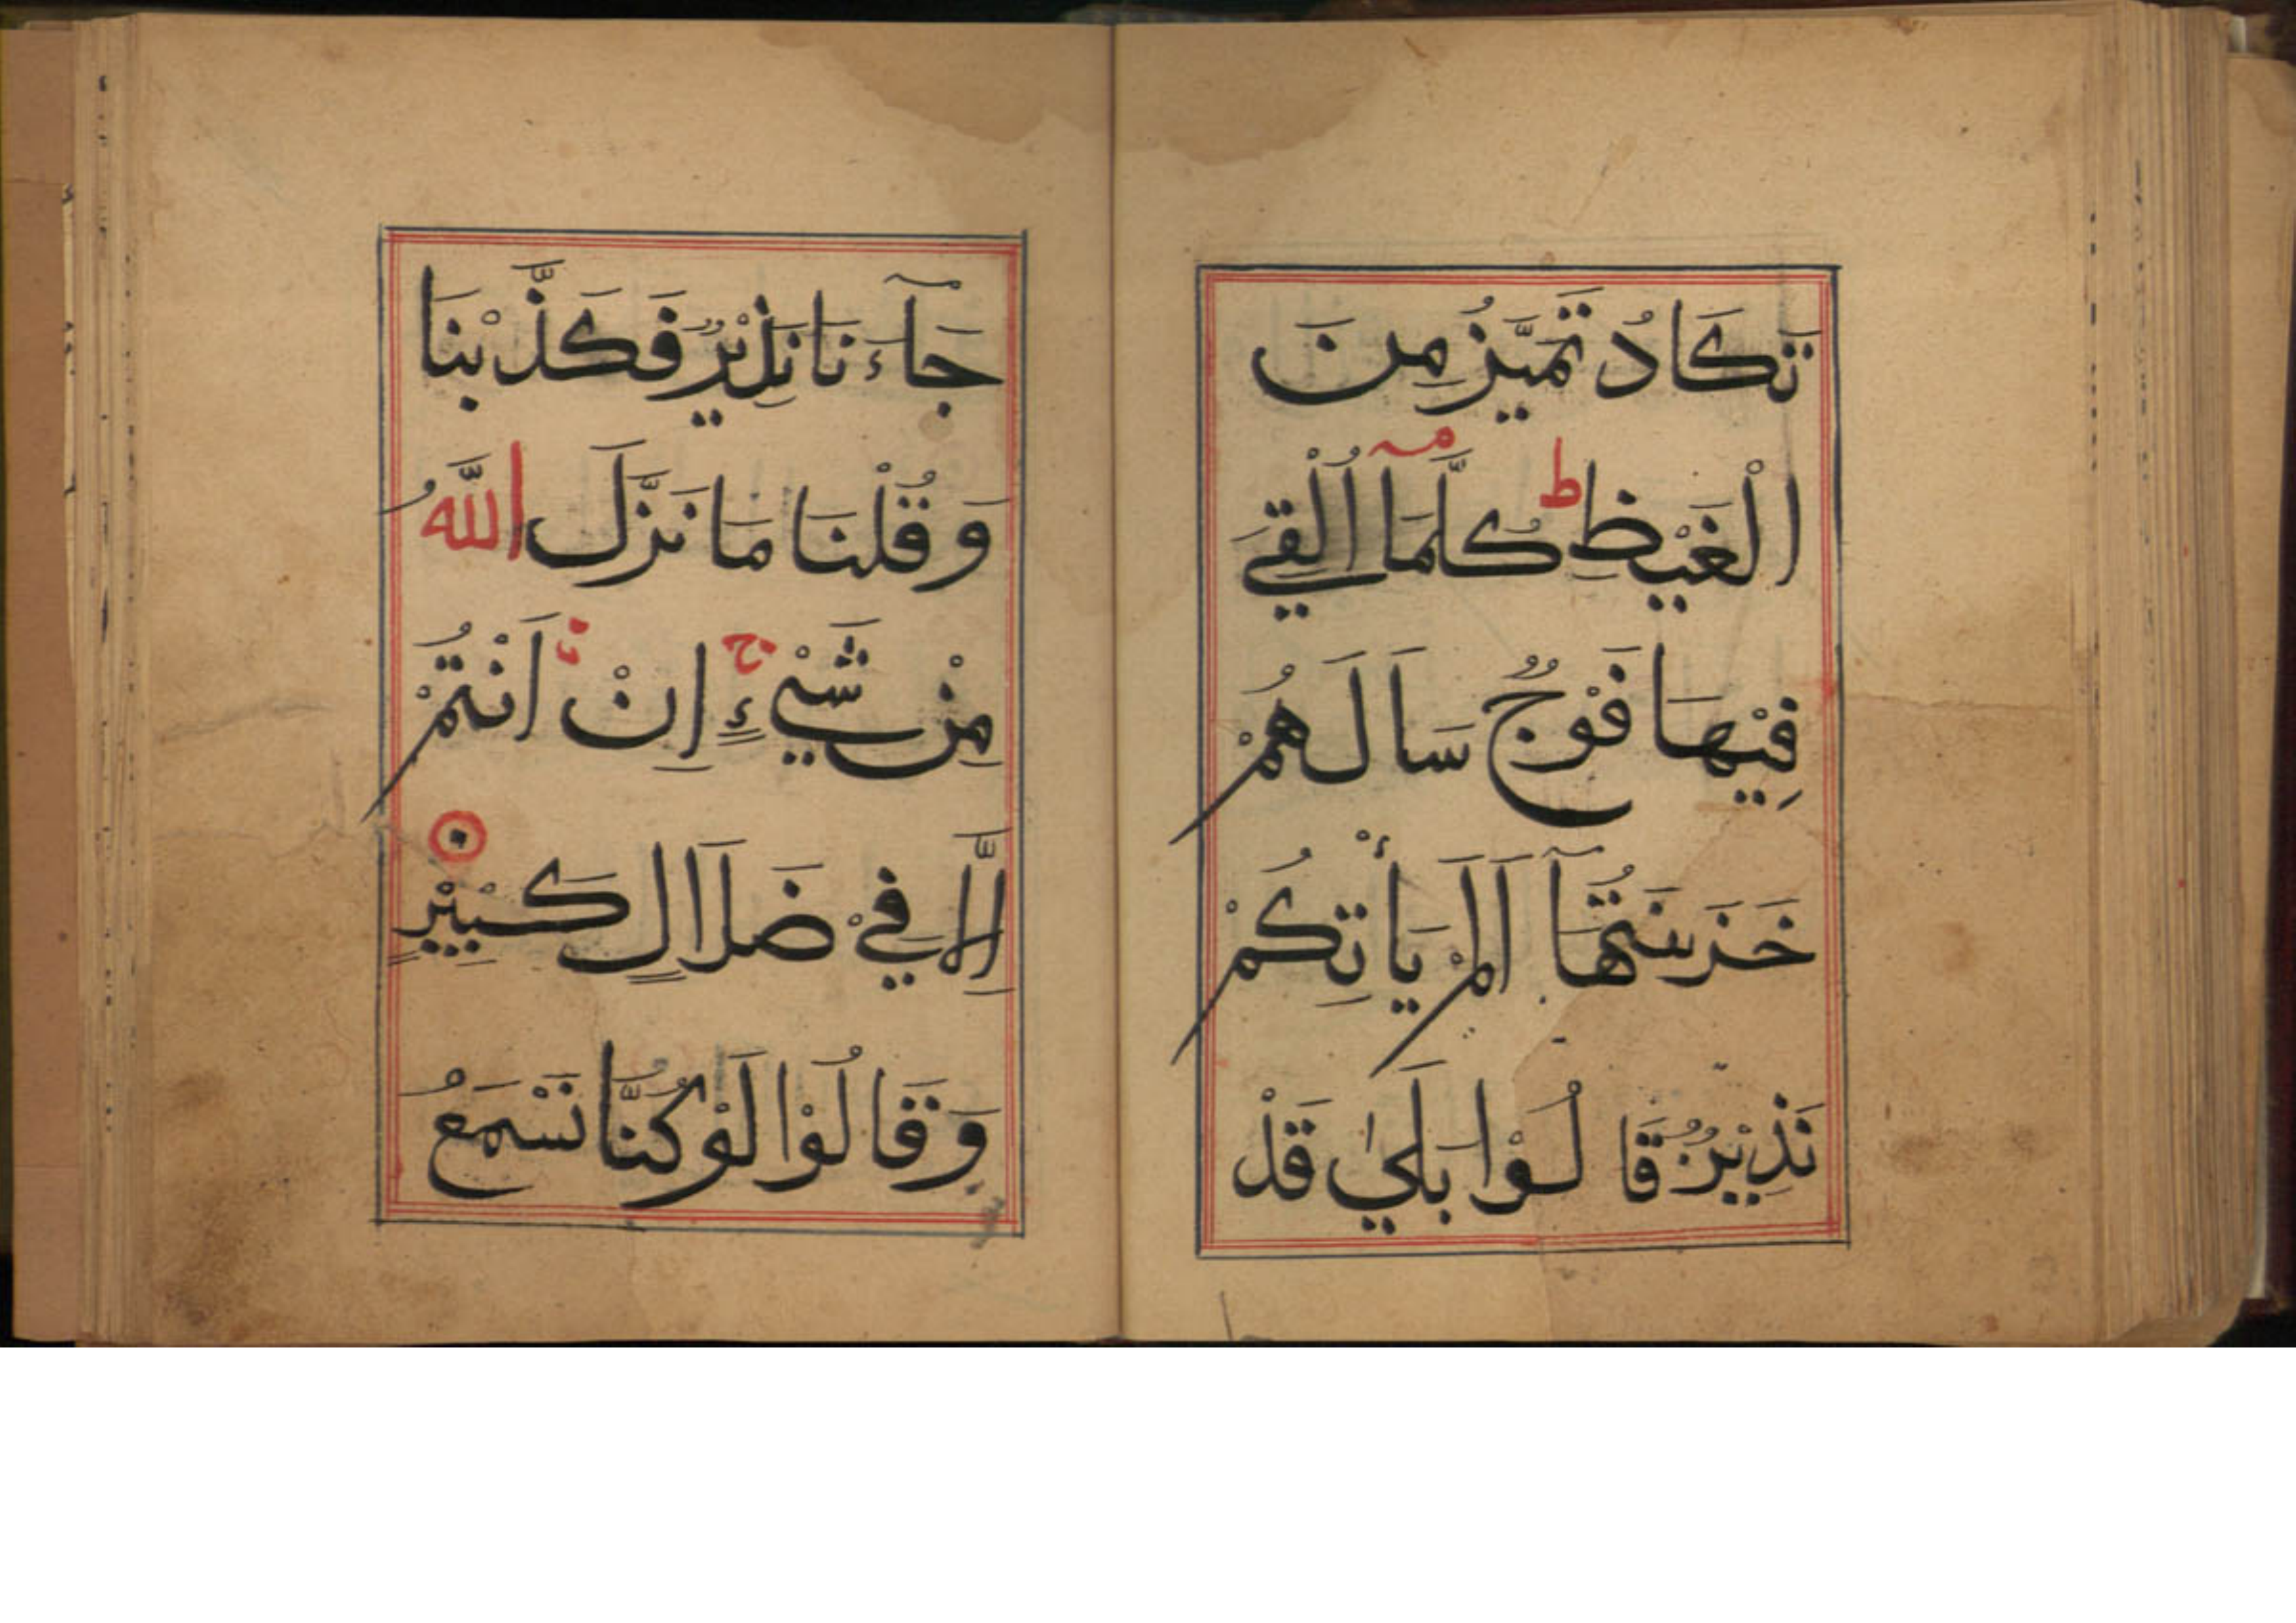 تَكَادُ تَمَيَّزُ مِنَ
الْغَيْظِ ط كُلَّمَآ اُلْقِيَ
فِيْهَا فَوْجٌ سَاَلَهُمْ
خَزَنَتُهَآ اَلَمْ يَأْتِكُمْ
نَذِيْرٌ قَالُوْا بَلٰي قَدْ
جَآءَنَا نَذِيْرٌ فَكَذَّبْنَا
وَقُلْنَا مَا نَزَّلَ اللَّهُ
مِنْ شَيْءٍ ج اِنْ اَنْتُمْ
اِلَّا فِيْ ضَلَالٍ كَبِيْرٍ
وَقَالُوْا لَوْ كُنَّا نَسْمَعُ